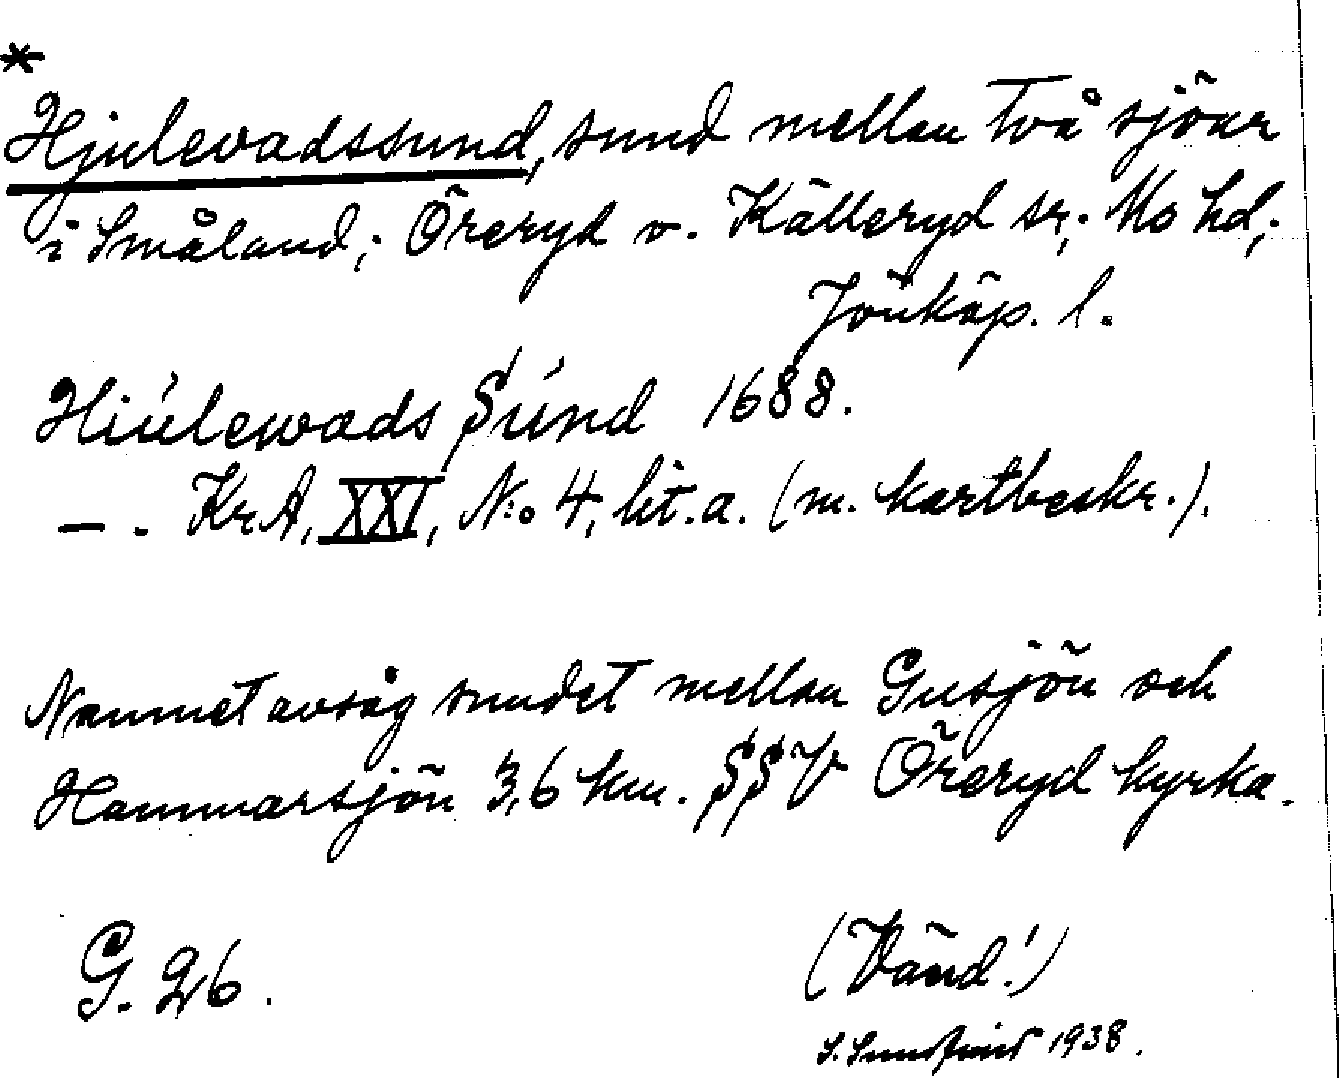 *
Hjulevadssund, sund mellan två sjöar
i Småland; Öreryd o. Källeryd sr; Mo hd;
Jönköp. l.
Hiúlewads Súnd 1688.
— . KrA, XXI, N:o 4, lit. a. (m. kartbeskr.).
Namnet avsåg sundet mellan Gusjön och
Hammarsjön 3,6 km. SSV Öreryd kyrka.
G. 26.
(Vänd!)
S. 1938.